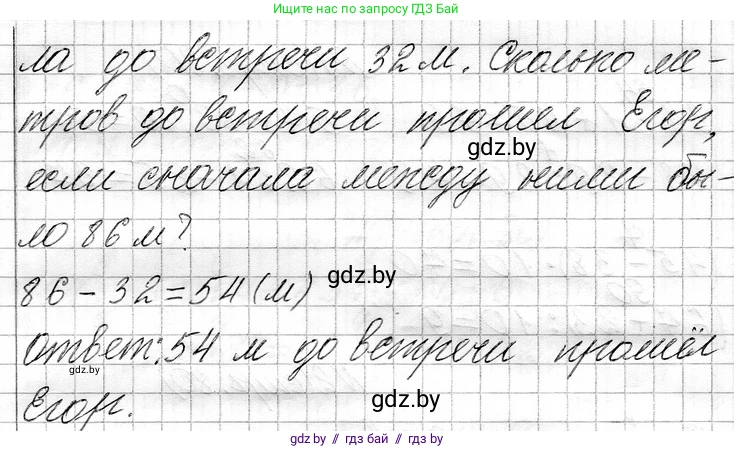 Ищите нас по запросу ГДЗ Бай
ла до встречи 32 м. Сколько ме-
тров до встречи прошел Егор,
gdz.by
если сначала между ними бы-
ло 86 м?
gdz.by
86 - 32 = 54 (м)
Ответ: 54 м до встречи прошёл
gdz.by
Егор.
gdz.by
gdz.by // гдз бай // gdz.by // гдз бай